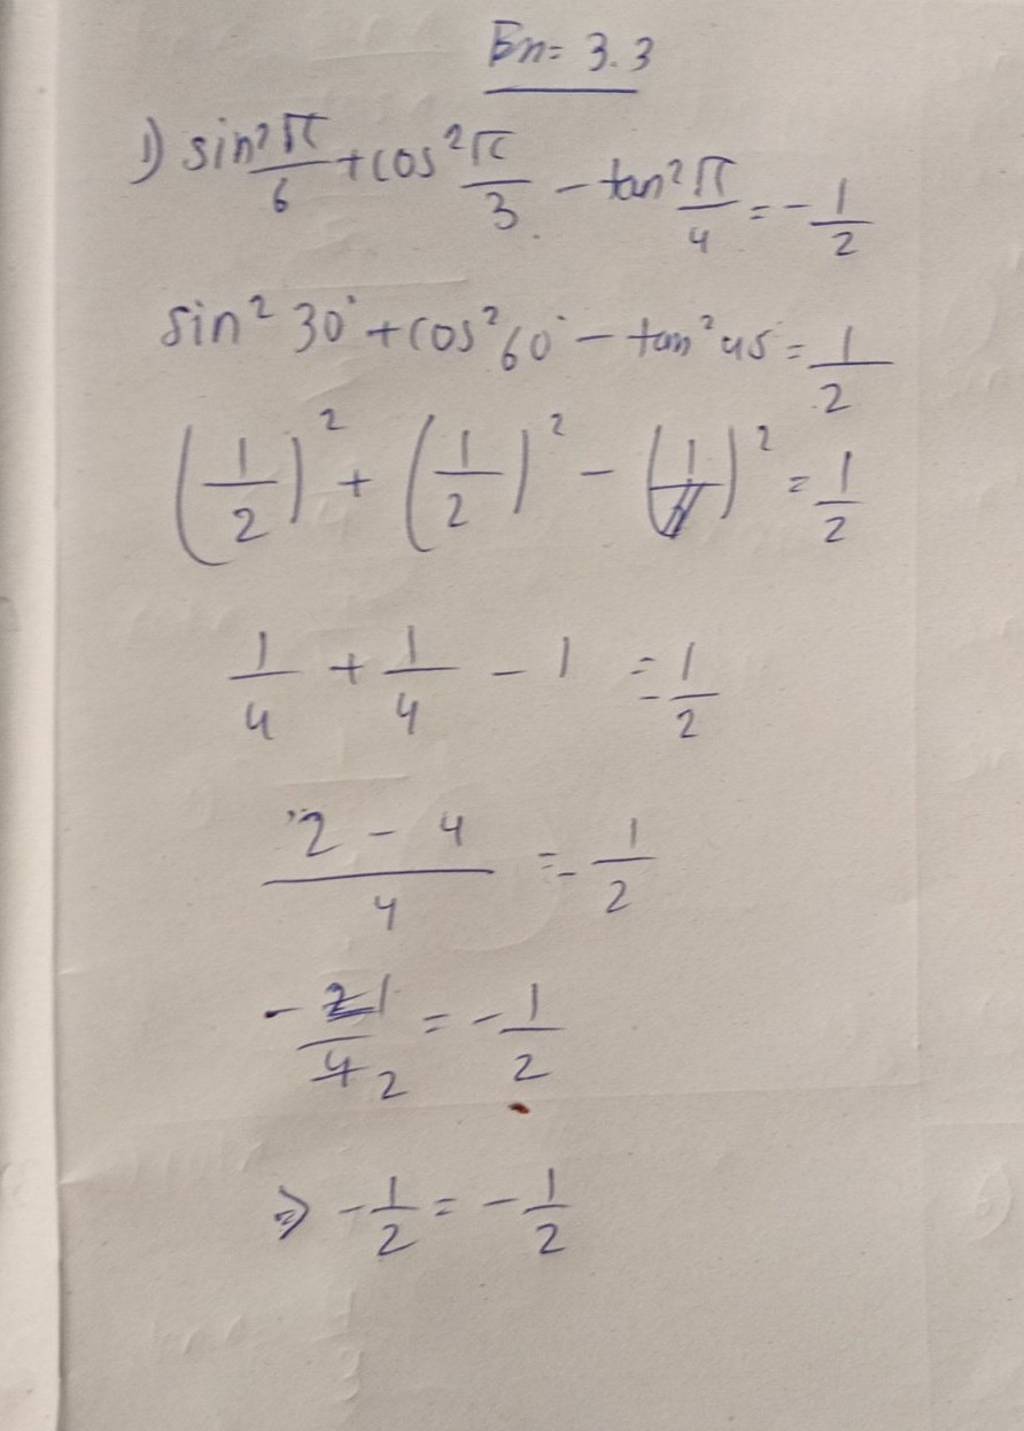 Ex= 3.3
1) sin²π/6 + cos²π/3 - tan²π/4 = -1/2
sin² 30° + cos² 60° - tan² 45 = 1/2
(1/2)² + (1/2)² - (1)² = 1/2
1/4 + 1/4 - 1 = -1/2
2 - 4/4 = -1/2
-2 1/4 2 = -1/2
⇒ -1/2 = -1/2